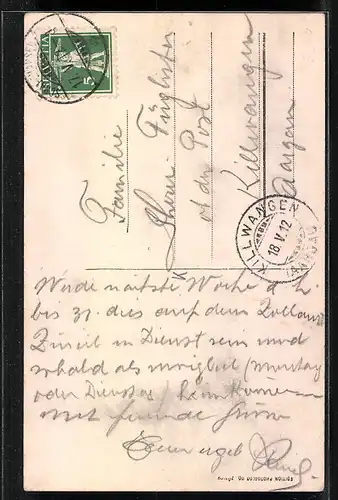 HELVETIA
5
KILLWANGEN
18.V.12
(AARGAU)
Familie
Füglister
z. Post
Killwangen
Aargau
Werde nächste Woche d. h.
bis 21. dies auf dem Zollamt
Zürich in Dienst sein und
sobald als möglich (Montag
oder Dienstag) heimkommen
Mit freundl. Grüsse
Euer ergeb.